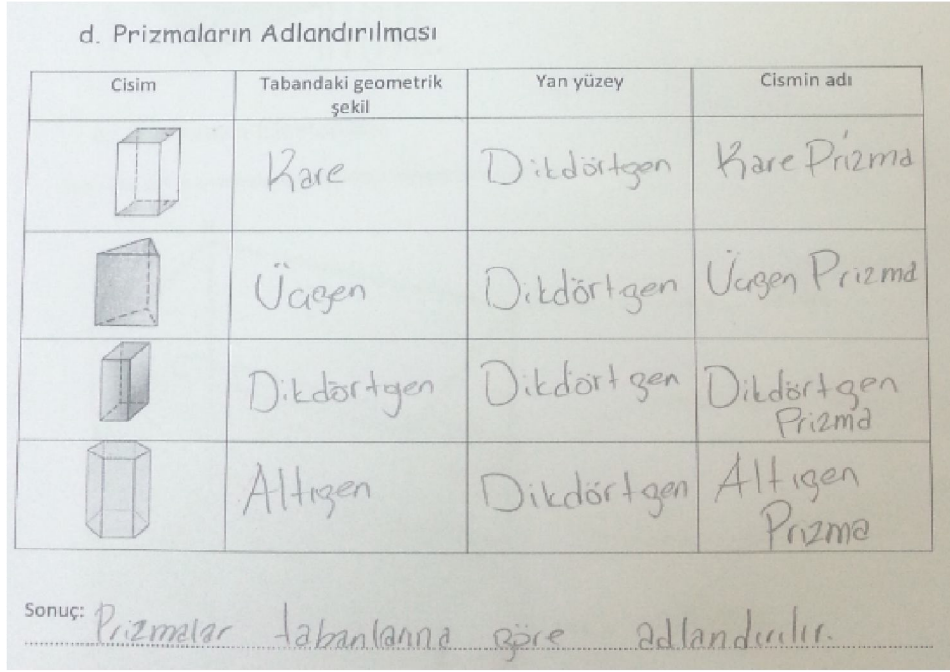 d. Prizmaların Adlandırılması
Cisim
Tabandaki geometrik
şekil
Yan yüzey
Cismin adı
Kare
Dikdörtgen
Kare Prizma
Üçgen
Dikdörtgen
Üçgen Prizma
Dikdörtgen
Dikdörtgen
Dikdörtgen
Prizma
Altıgen
Dikdörtgen
Altıgen
Prizma
Sonuç: Prizmalar tabanlarına göre adlandırılır.